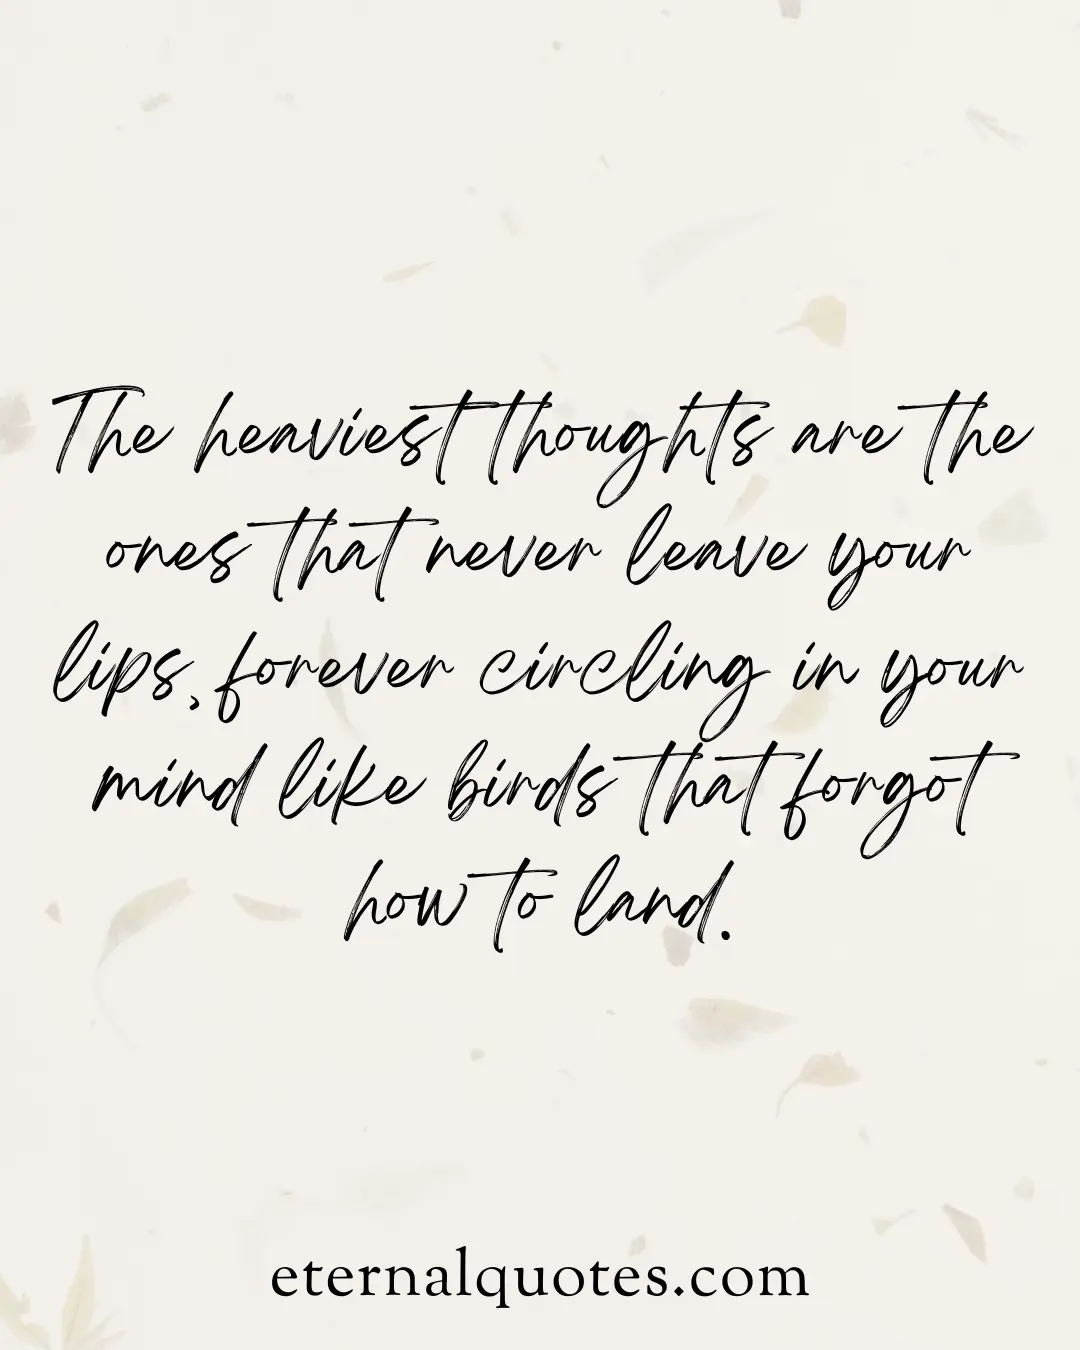 The heaviest thoughts are the
ones that never leave your
lips, forever circling in your
mind like birds that forgot
how to land.
eternalquotes.com